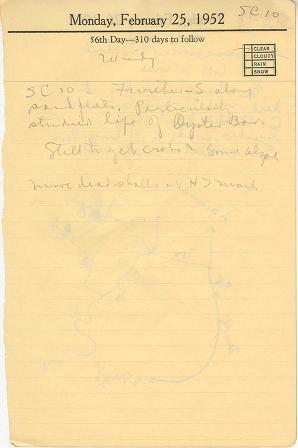 SC 10
Monday, February 25, 1952
56th Day—310 days to follow
CLEAR
CLOUDY
RAIN
SNOW
Windy
SC 10 Further S along
sand flats. Particularly
studied life of Oyster Bar.
Still to get crabs Some algae
more dead shells at H T mark